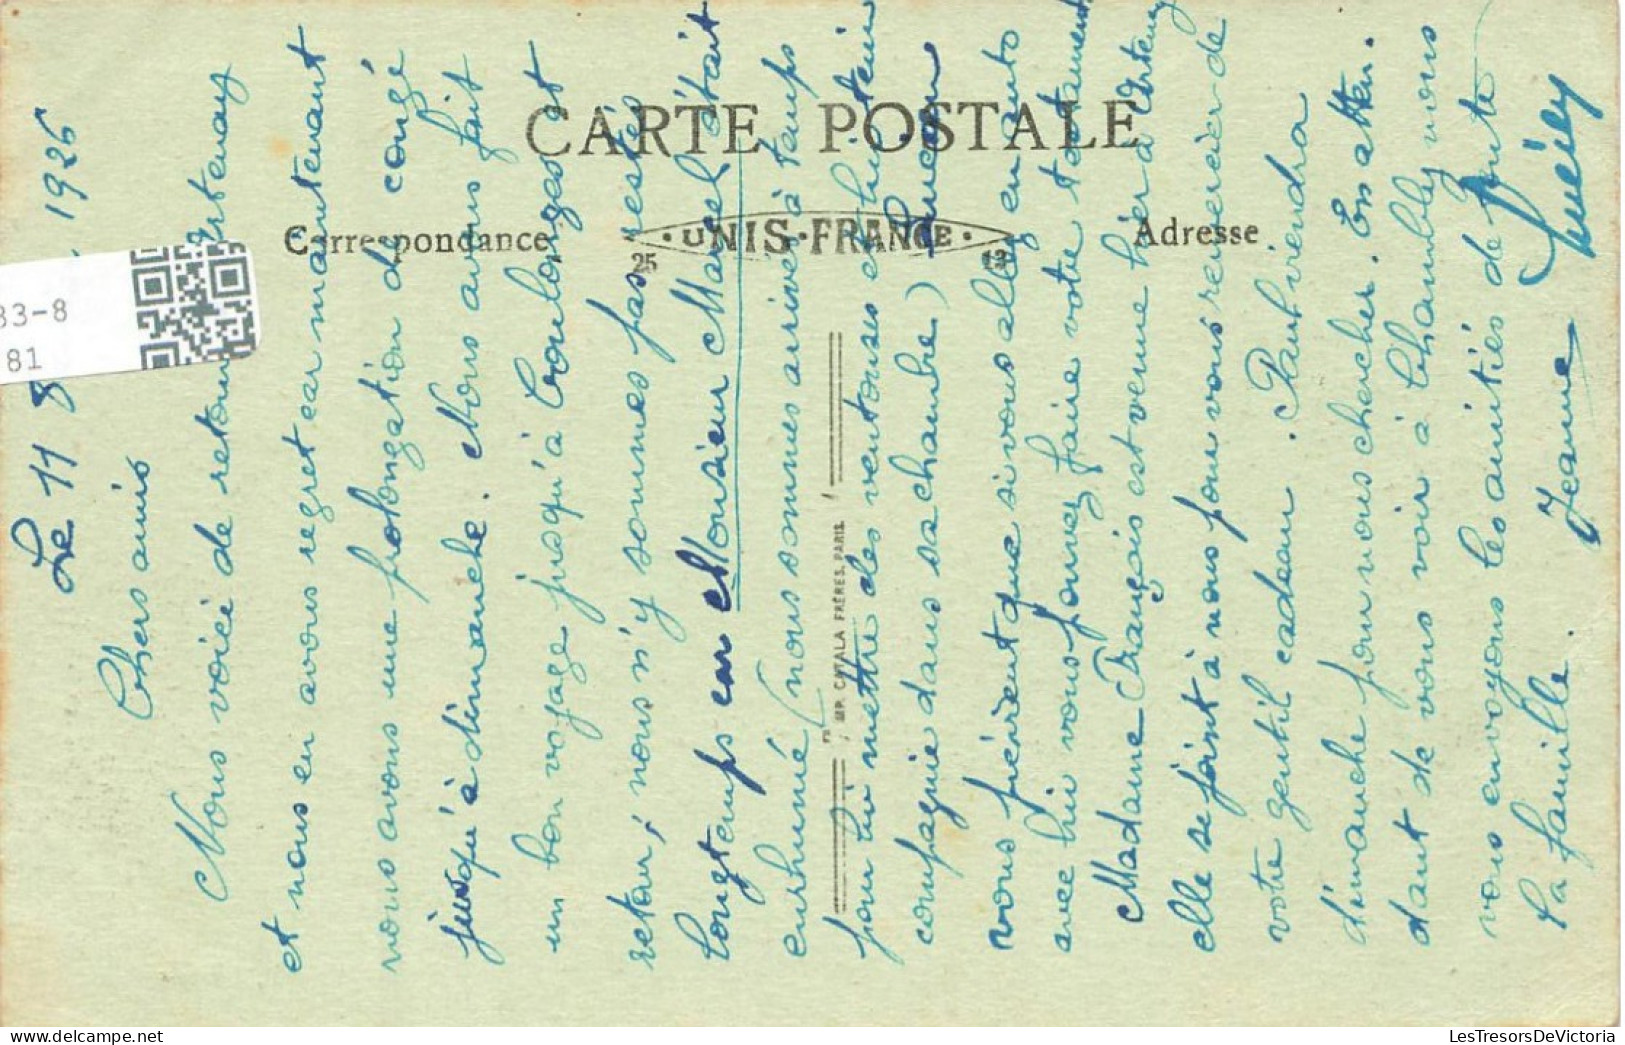 Le 11 8 1926
Chers amis
Nous voicé de retour Artenay
et nous en avons regret car maintenant
nous avons une prolongation de congé
jusqu'à dimanche. Nous avons fait
un bon voyage jusqu'à Coulonges et
retour, nous n'y sommes pas restés
longtemps car Monsieur Marcel était
enrhumé (nous sommes arrivés à temps
pour lui mettre des ventouses en lui tenir
compagnie dans sa chambre.) Lucien
vous prévient que si vous allez en auto
avec lui vous pouvez faire votre testament
Madame François est venue hier à Artenay
elle se joint à nous pour vous remercier de
votre gentil cadeau. Paul viendra
dimanche pour nous chercher. En atten.
dant de vous voir à Chambly nous
vous envoyons les amitiés de toute
la famille. Jeanne
CARTE POSTALE
Correspondance
UNIS-FRANCE
25
Adresse
IMP. CATALA FRÈRES, PARIS
33-8
81
LesTresorsDeVictoria